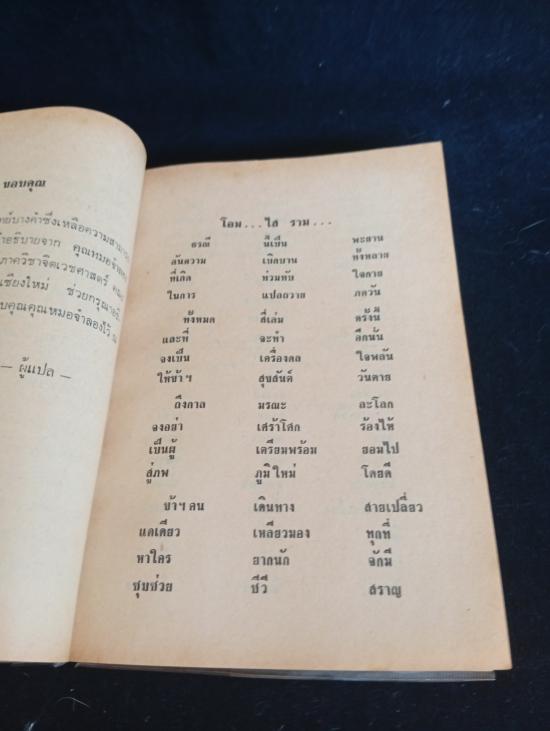 ขอบคุณ
ย์บางคำซึ่งเหลือความสามารถ
คุณหมอจำลอง
ภาควิชาจิตเวชศาสตร์
เชียงใหม่ ช่วยกรุณา
บคุณคุณหมอจำลองไว้ ณ
— ผู้แปล —
โอม...ไส ราม...
ธรณี นี่เป็น พะยาน
ล้นความ เบิกบาน ทั้งหลาย
ที่เกิด ท่วมทับ ใจกาย
ในการ แปลถวาย ภควัน
ทั้งหมด สี่เล่ม ครั้งนี้
และที่ จะทำ อีกนั้น
จงเป็น เครื่องดล ใจพลัน
ให้ข้าฯ สุขสันต์ วันตาย
ถึงกาล มรณะ ละโลก
จงอย่า เศร้าโศก ร้องไห้
เป็นผู้ เตรียมพร้อม ยอมไป
สู่ภพ ภูมิใหม่ โดยดี
ข้าฯ คน เดินทาง สายเปลี่ยว
แดเดียว เหลียวมอง ทุกที่
หาใคร ยากนัก จักมี
ชุบช่วย ชีวี สราญ